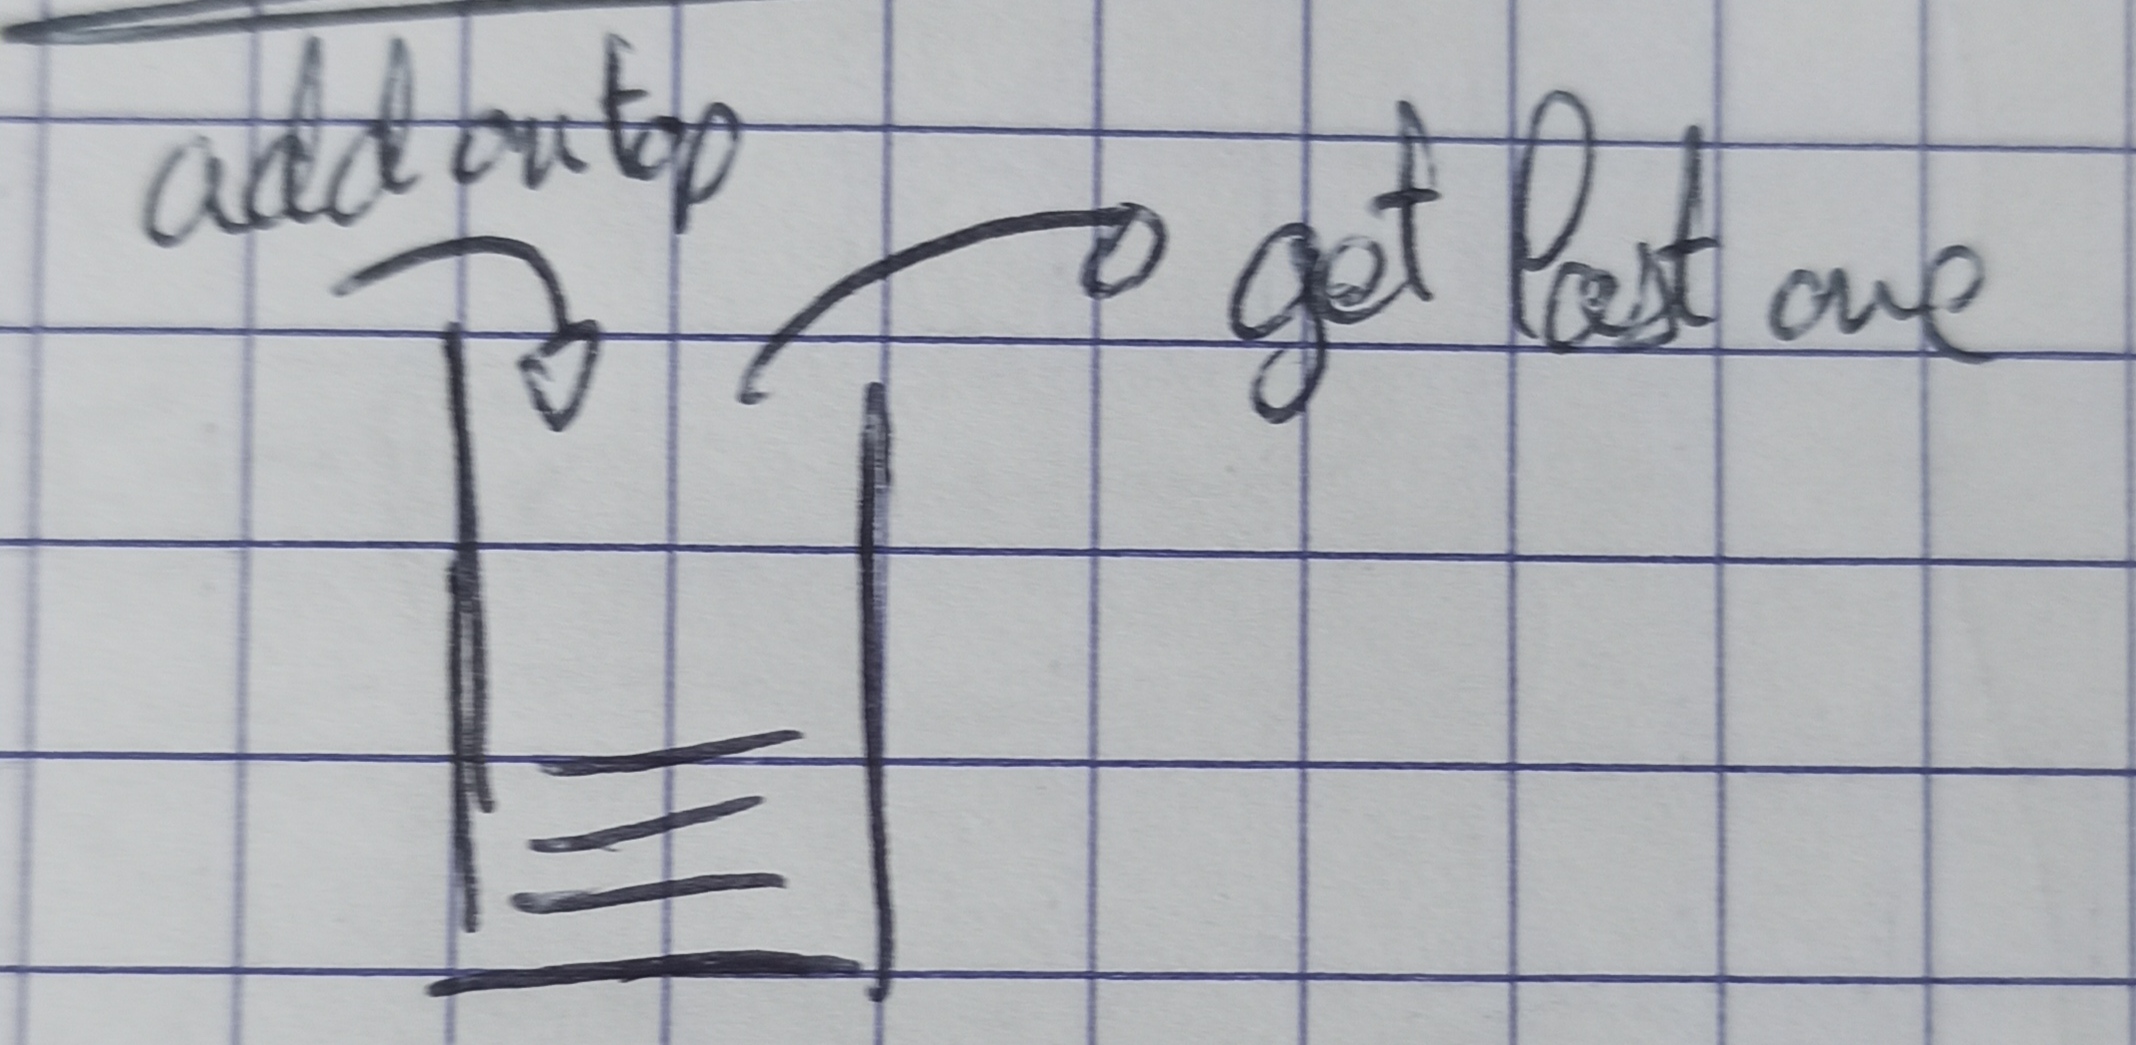 add on top
get last one